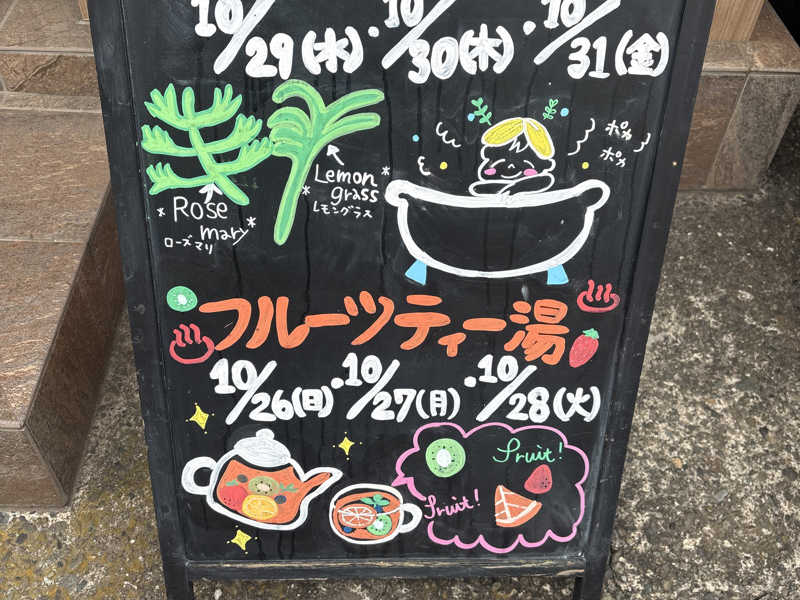 10/29(水)・10/30(木)・10/31(金)
ポカ
ポカ
Rose
mary
ローズマリ
Lemon
grass
レモングラス
フルーツティー湯
10/26(日)・10/27(月)・10/28(火)
Fruit!
Fruit!